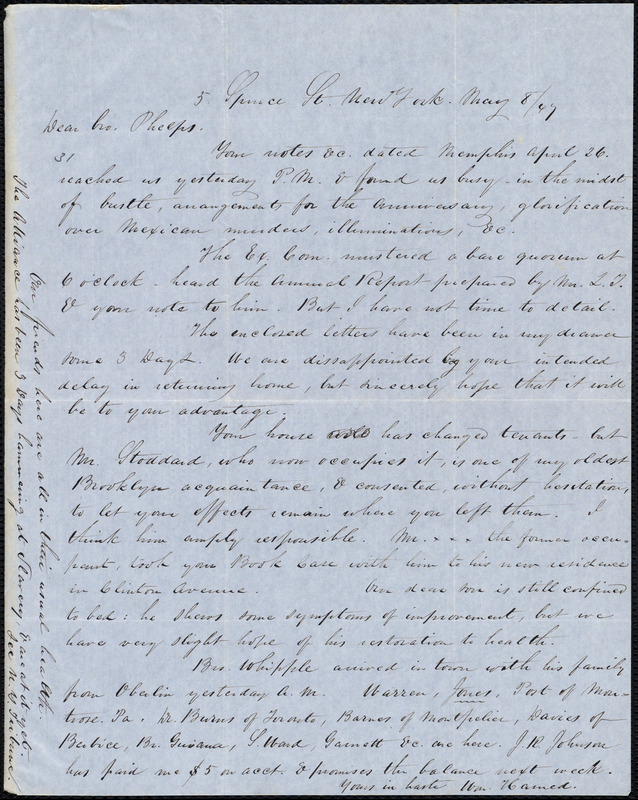 5 Spruce St. New York. May 8/47
Dear bro. Phelps.
31
Your notes &c. dated Memphis April 26.
reached us yesterday P.M. & found us busy in the midst
of bustle, arrangements for the anniversary, glorification
over Mexican murders, illuminations, &c.
The Ex. Com. mustered a bare quorum at
6 o'clock - heard the Annual Report prepared by Mr. L.T.
& your note to him. But I have not time to detail.
The enclosed letters have been in my drawer
some 3 Days. We are dissappointed by your intended
delay in returning home, but sincerely hope that it will
be to your advantage.
Your house has changed tenants - but
Mr. Stoddard, who now occupies it, is one of my oldest
Brooklyn acquaintance, & consented, without hesitation,
to let your effects remain where you left them. I
think him amply responsible. Mr. × × × the former occu-
pant, took your Book Case with him to his new residence
in Clinton Avenue. Our dear son is still confined
to bed: he shews some symptoms of improvement, but we
have very slight hope of his restoration to health.
Bro. Whipple arrived in town with his family
from Oberlin yesterday A.M. Warren, Jones, Post of Mon-
trose. Pa. Dr. Burns of Toronto, Barnes of Montpelier, Davies of
Berbice, Br. Guiana, S. Ward, Garnett &c. are here. J.R. Johnson
has paid me $5 on acct. & promises the balance next week.
Yours in haste Wm. Harned.
Our friends here are all in their usual health.
The Alliance has been 3 Days hammering at Slavery, & are at it yet.
See N.Y. Tribune